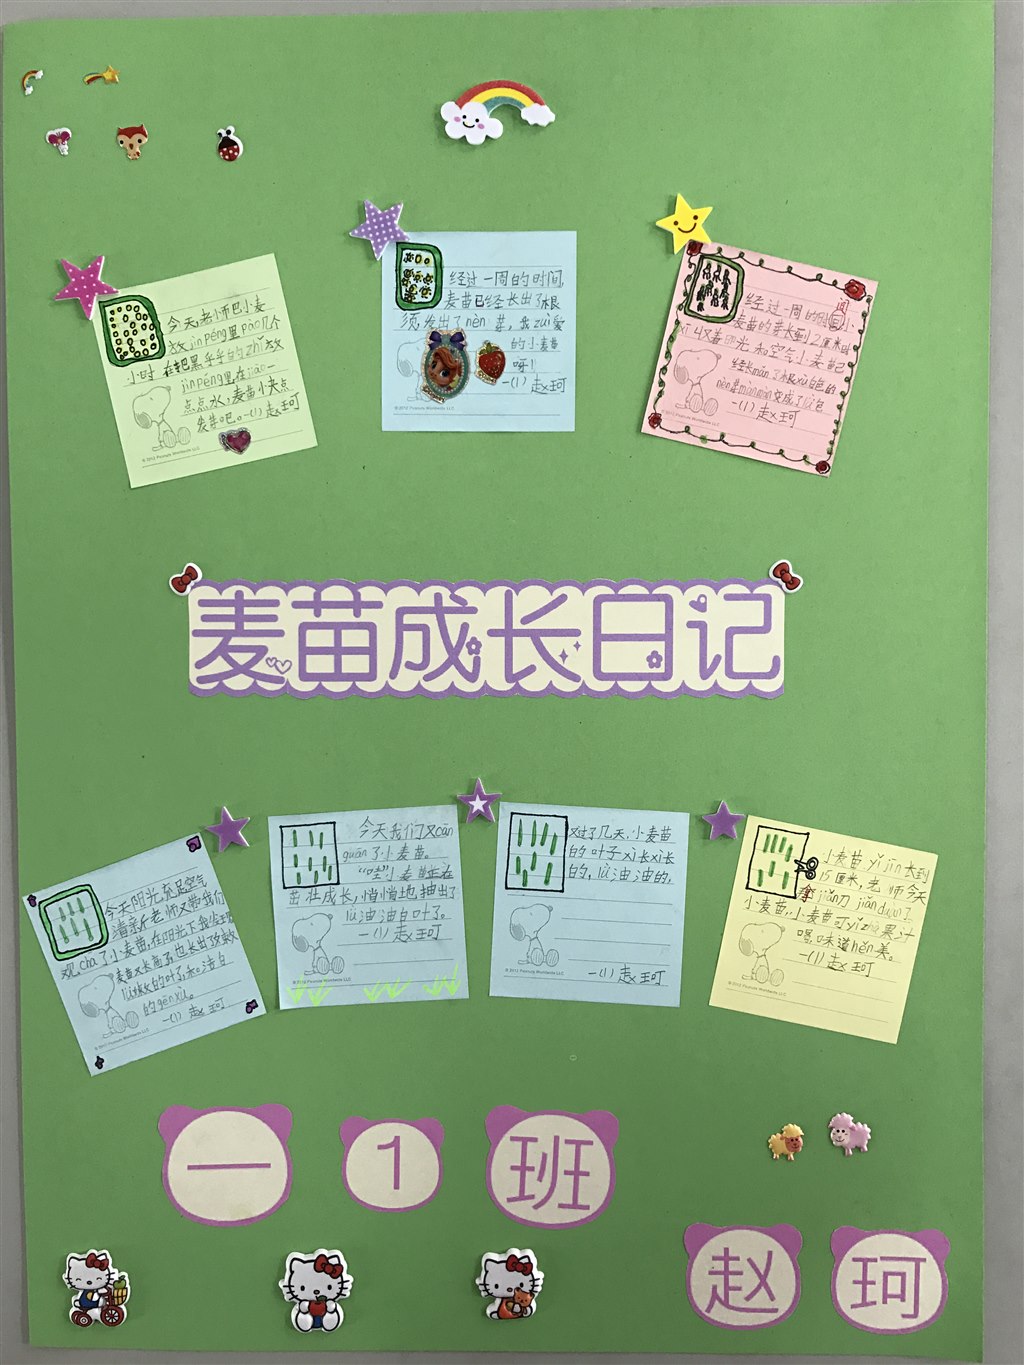 今天老师巴小麦
放jīnpéng里pào几个
小时 在把黑乎乎的zhǐ放
jīnpéng里在jiāo一
点点水，麦苗小夹点
发芽吧。一(1) 赵珂
© 2012 Peanuts Worldwide LLC
经过一周的时间，
麦苗已经长出了根
须，发出了nèn芽，我zuì爱
的小麦苗
呀！
一(1) 赵珂
© 2012 Peanuts Worldwide LLC
经过一周的时间小
麦苗的芽长到2厘米
光和空气小麦苗已
经长mǎn了根xū白色的
nèn芽mànmàn变成了lǜ色
一(1) 赵珂
© 2012 Peanuts Worldwide LLC
麦苗成长日记
今天阳光充足空气
清新，老师又带我们
观chá了小麦苗，在阳光下我发现
麦苗又长高了，也长出了
的叶子和洁白
的gēnxū。
一(1) 赵珂
© 2012 Peanuts Worldwide LLC
今天我们又cān
guān了小麦苗。
“哇”小麦苗正在
茁壮成长，悄悄地抽出了
lǜ油油白叶了。
一(1) 赵珂
© 2012 Peanuts Worldwide LLC
又过了几天，小麦苗
的叶子xì长xì长
的，lǜ油油的，
一(1) 赵珂
© 2012 Peanuts Worldwide LLC
小麦苗yǐjīn长到
15厘米，老师今天
拿jiǎn刀jiǎnduàn了
小麦苗，小麦苗可yǐzhà果汁
喝，味道hěn美。
一(1) 赵珂
© 2012 Peanuts Worldwide LLC
一 1 班
赵 珂